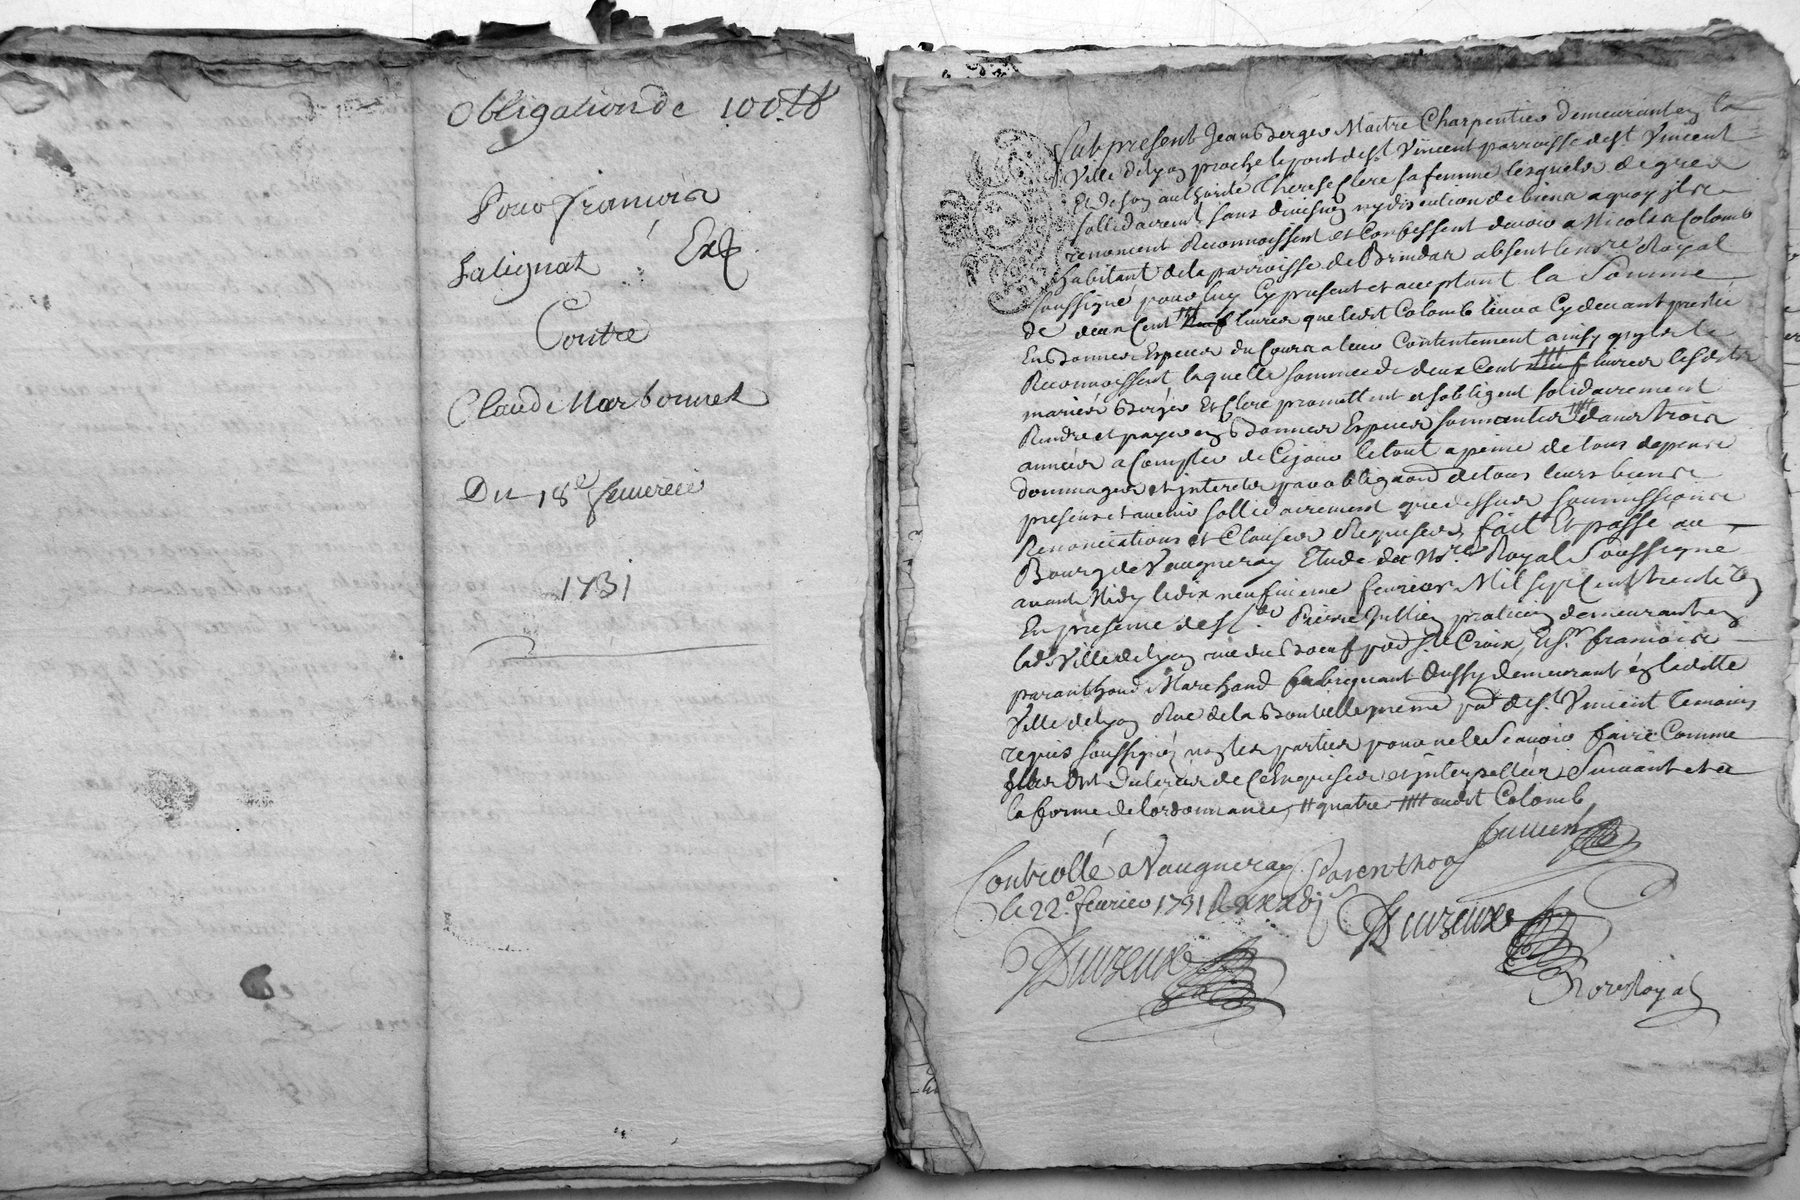 Obligation de 100 ₶
Pour francois
Salignat Exp
Contre
Claude Narbonnet
Du 18e feuvrier
1731
fut present Jean Berger Maitre Charpentier demeurant en la
Ville de Lyon proche le pont de St Vincent parroisse de St Vincent
Et de son authorité Therese Clere sa femme lesquels de gré
sollidairement sans division ny discution de biens a quoy ils
renoncent Reconnoissent et Confessent devoir a Nicolas Colomb
habitant de la parroisse de Brindas absent le nre Royal
soussigné pour luy Cy present et acceptant la Somme
de deux Cent neuf livres que ledit Colomb leur a Cy devant presté
En Bonnes Especes du Cours a leur Contentement ainsy quils le
Reconnoissent laquelle somme de deux Cent neuf livres lesdits
mariés Berger Et Clere promettent et sobligent solidairement
Rendre et payer en Bonnes Especes sonnantes dans trois
années a Compter de Cejour le tout a peine de tous depens
dommages et interets par obligaon de tous leurs biens
presens et avenir sollidairement que dessus soumissions
Renonciations et Clauses Requises, fait Et passé au
Bourg de Vaugneray Etude du Nre Royal Soussigné
avant Midy le dix neufvieme fevrier Mil sept cent trente un
En presence de Sr Pierre Jullien praticien demeurant en
lade Ville de Lyon rue du Boeuf psse Ste Croix, Et Sr francois
paranthoud Marchand fabriquant Aussy demeurant en laditte
Ville de Lyon Rue de la Bouteille meme psse de St Vincent temoins
requis soussignés non les parties pour ne le Scavoir faire Comme
Elles Ont declaré de Ce Enquises et interpellées Suivant et a
la forme de lordonnance, # quatre #### audit Colomb,
Jullien
Parenthou
Controllé a Vaugneray
le 22e fevrier 1731
Duvzeux
Duvzeux
Nore Royal